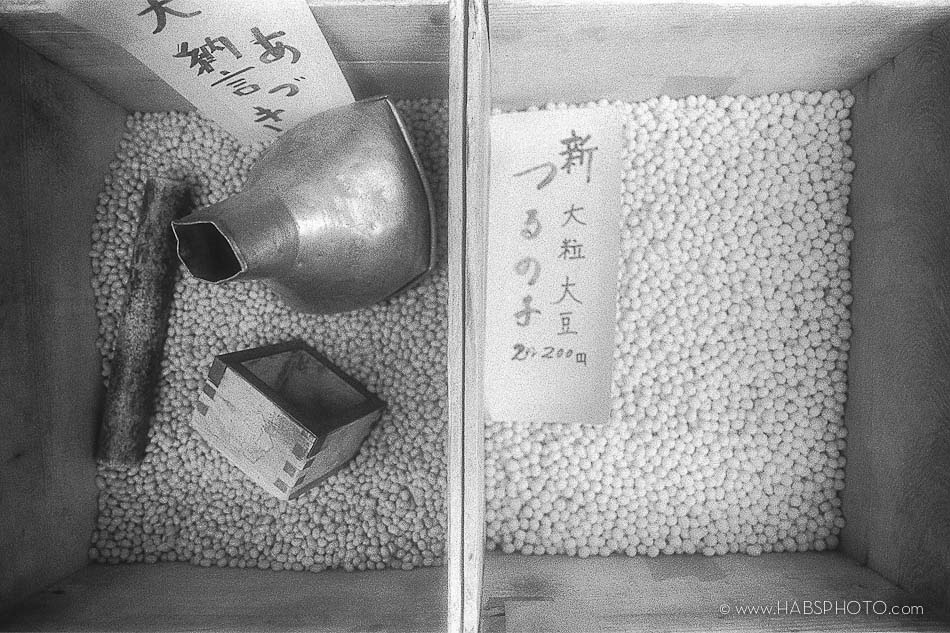 大納言
あづき
新
つるの子
大粒大豆
200円
© www.HABSPHOTO.com